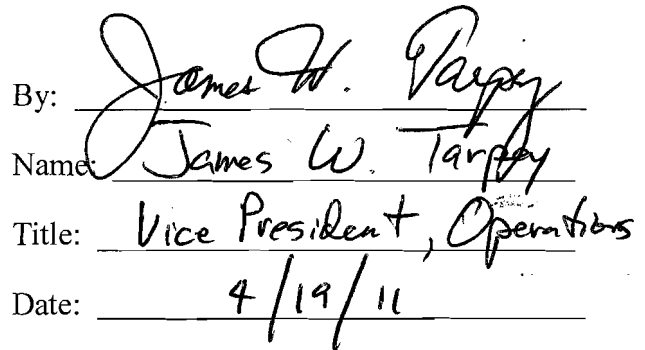 By: James W. Tarpey
Name: James W. Tarpey
Title: Vice President, Operations
Date: 4/19/11